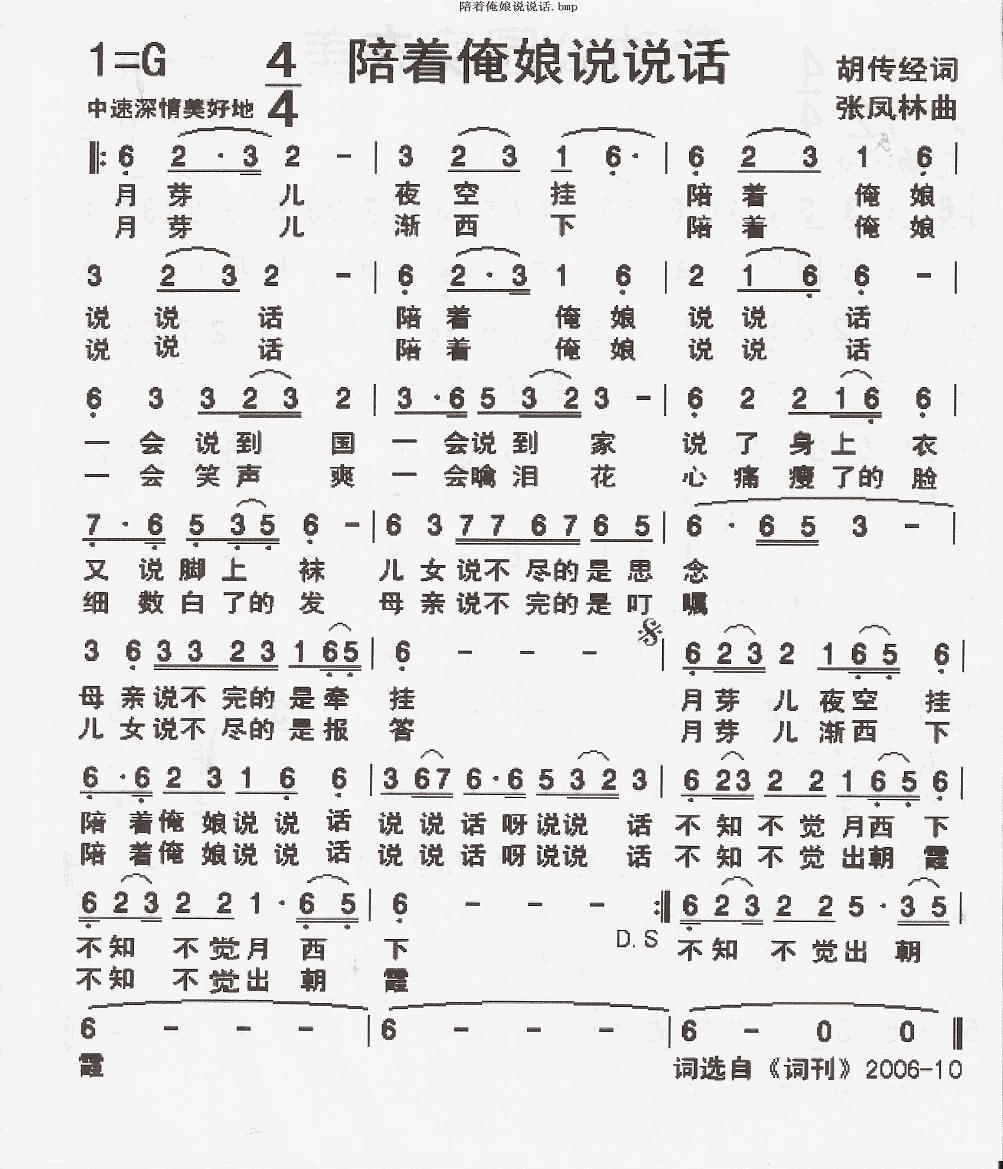 陪着俺娘说说话.bmp
1=G 4/4 陪着俺娘说说话 胡传经词
中速深情美好地 张凤林曲
‖: 6 2 · 3 2 - | 3 2 3 1 6 · | 6 2 3 1 6 |
月芽儿 夜空挂 陪着俺娘
月芽儿 渐西下 陪着俺娘
3 2 3 2 - | 6 2 · 3 1 6 | 2 1 6 6 - |
说说话 陪着俺娘 说说话
说说话 陪着俺娘 说说话
6 3 3 2 3 2 | 3 · 6 5 3 2 3 - | 6 2 2 1 6 6 |
一会说到国 一会说到家 说了身上衣
一会笑声爽 一会噙泪花 心痛瘦了的脸
7 · 6 5 3 5 6 - | 6 3 7 7 6 7 6 5 | 6 · 6 5 3 - |
又说脚上袜 儿女说不尽的是思念
细数白了的发 母亲说不完的是叮嘱
3 6 3 3 2 3 1 6 5 | 6 - - - | 6 2 3 2 1 6 5 6 |
母亲说不完的是牵挂 月芽儿夜空挂
儿女说不尽的是报答 月芽儿渐西下
6 · 6 2 3 1 6 6 | 3 6 7 6 · 6 5 3 2 3 | 6 2 3 2 2 1 6 5 6 |
陪着俺娘说说话 说说话呀说说话 不知不觉月西下
陪着俺娘说说话 说说话呀说说话 不知不觉出朝霞
6 2 3 2 2 1 · 6 5 | 6 - - - :‖ 6 2 3 2 2 5 · 3 5 |
不知不觉月西下 D.S 不知不觉出朝
不知不觉出朝霞
6 - - - | 6 - - - | 6 - 0 0 ‖
霞 词选自《词刊》2006-10